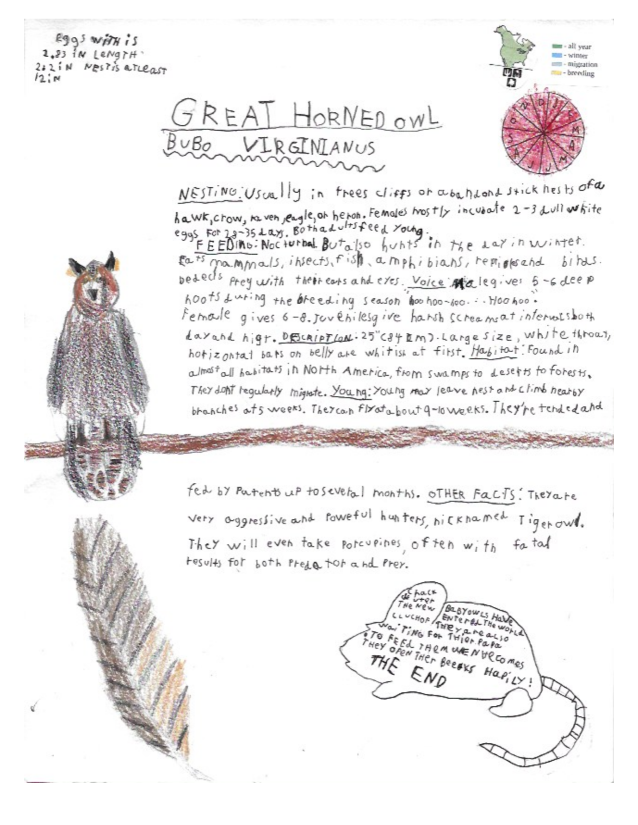 Eggs with is
2.83 in Length
202in Nest is atleast
12in
- all year
- winter
- migration
- breeding
GREAT HORNED OWL
BUBO VIRGINIANUS
NESTING: Usually in trees cliffs or abandond stick nests of a
hawk, crow, raven, eagle, or heron. Females mostly incubate 2-3 dull white
eggs for 28-35 days. Both adults feed young.
FEEDING: Nocturnal But also hunts in the day in winter.
Eats mammals, insects, fish, amphibians, and birds.
Prey with their ears and eyes. Voice: Male gives 5-6 deep
hoots during the breeding season hoo hoo-hoo... Hoo hoo.
Female gives 6-8. Juvenilesgive harsh screams at intervals both
day and night. DESCRIPTION: 25" Large size, white throat,
horizontal bars on belly are whitish at first. Habitat: Found in
almost all habitats in North America, from swamps to deserts to forests.
They dont regularly migrate. Young: Young may leave nest and climb nearby
branches at 5 weeks. They can fly at about 9-10 weeks. They're tended and
fed by Parents up to several months. OTHER FACTS: They are
very aggressive and Poweful hunters, nicknamed Tiger owl.
They will even take Porcupines, often with fatal
results for both Predator and Prey.
THE NEW
BABY OWLS HAVE
ENTERED THE WORLD
THEY are also
WAITING FOR THIER PAPA
TO FEED THEM WEN COMES
THEY OPEN THER HAPILY!
THE END